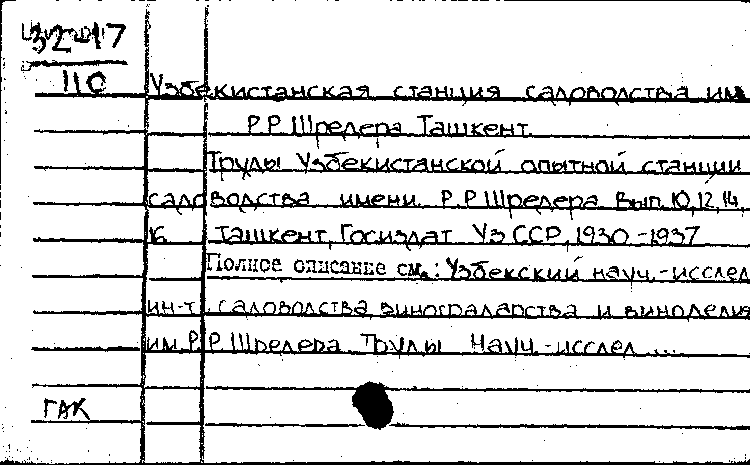 32-17
110
Узбекистанская станция садоводства им.
Р.Р Шредера Ташкент
Труды Узбекистанской опытной станции
садоводства имени Р.Р Шредера Вып. 10,12,14,
16 Ташкент, Госиздат УзССР, 1930-1937
Полное описание см.: Узбекский науч.-исслед
ин-т садоводства виноградарства и виноделия
им. Р.Р Шредера Труды Науч.-исслед ...
ГАК